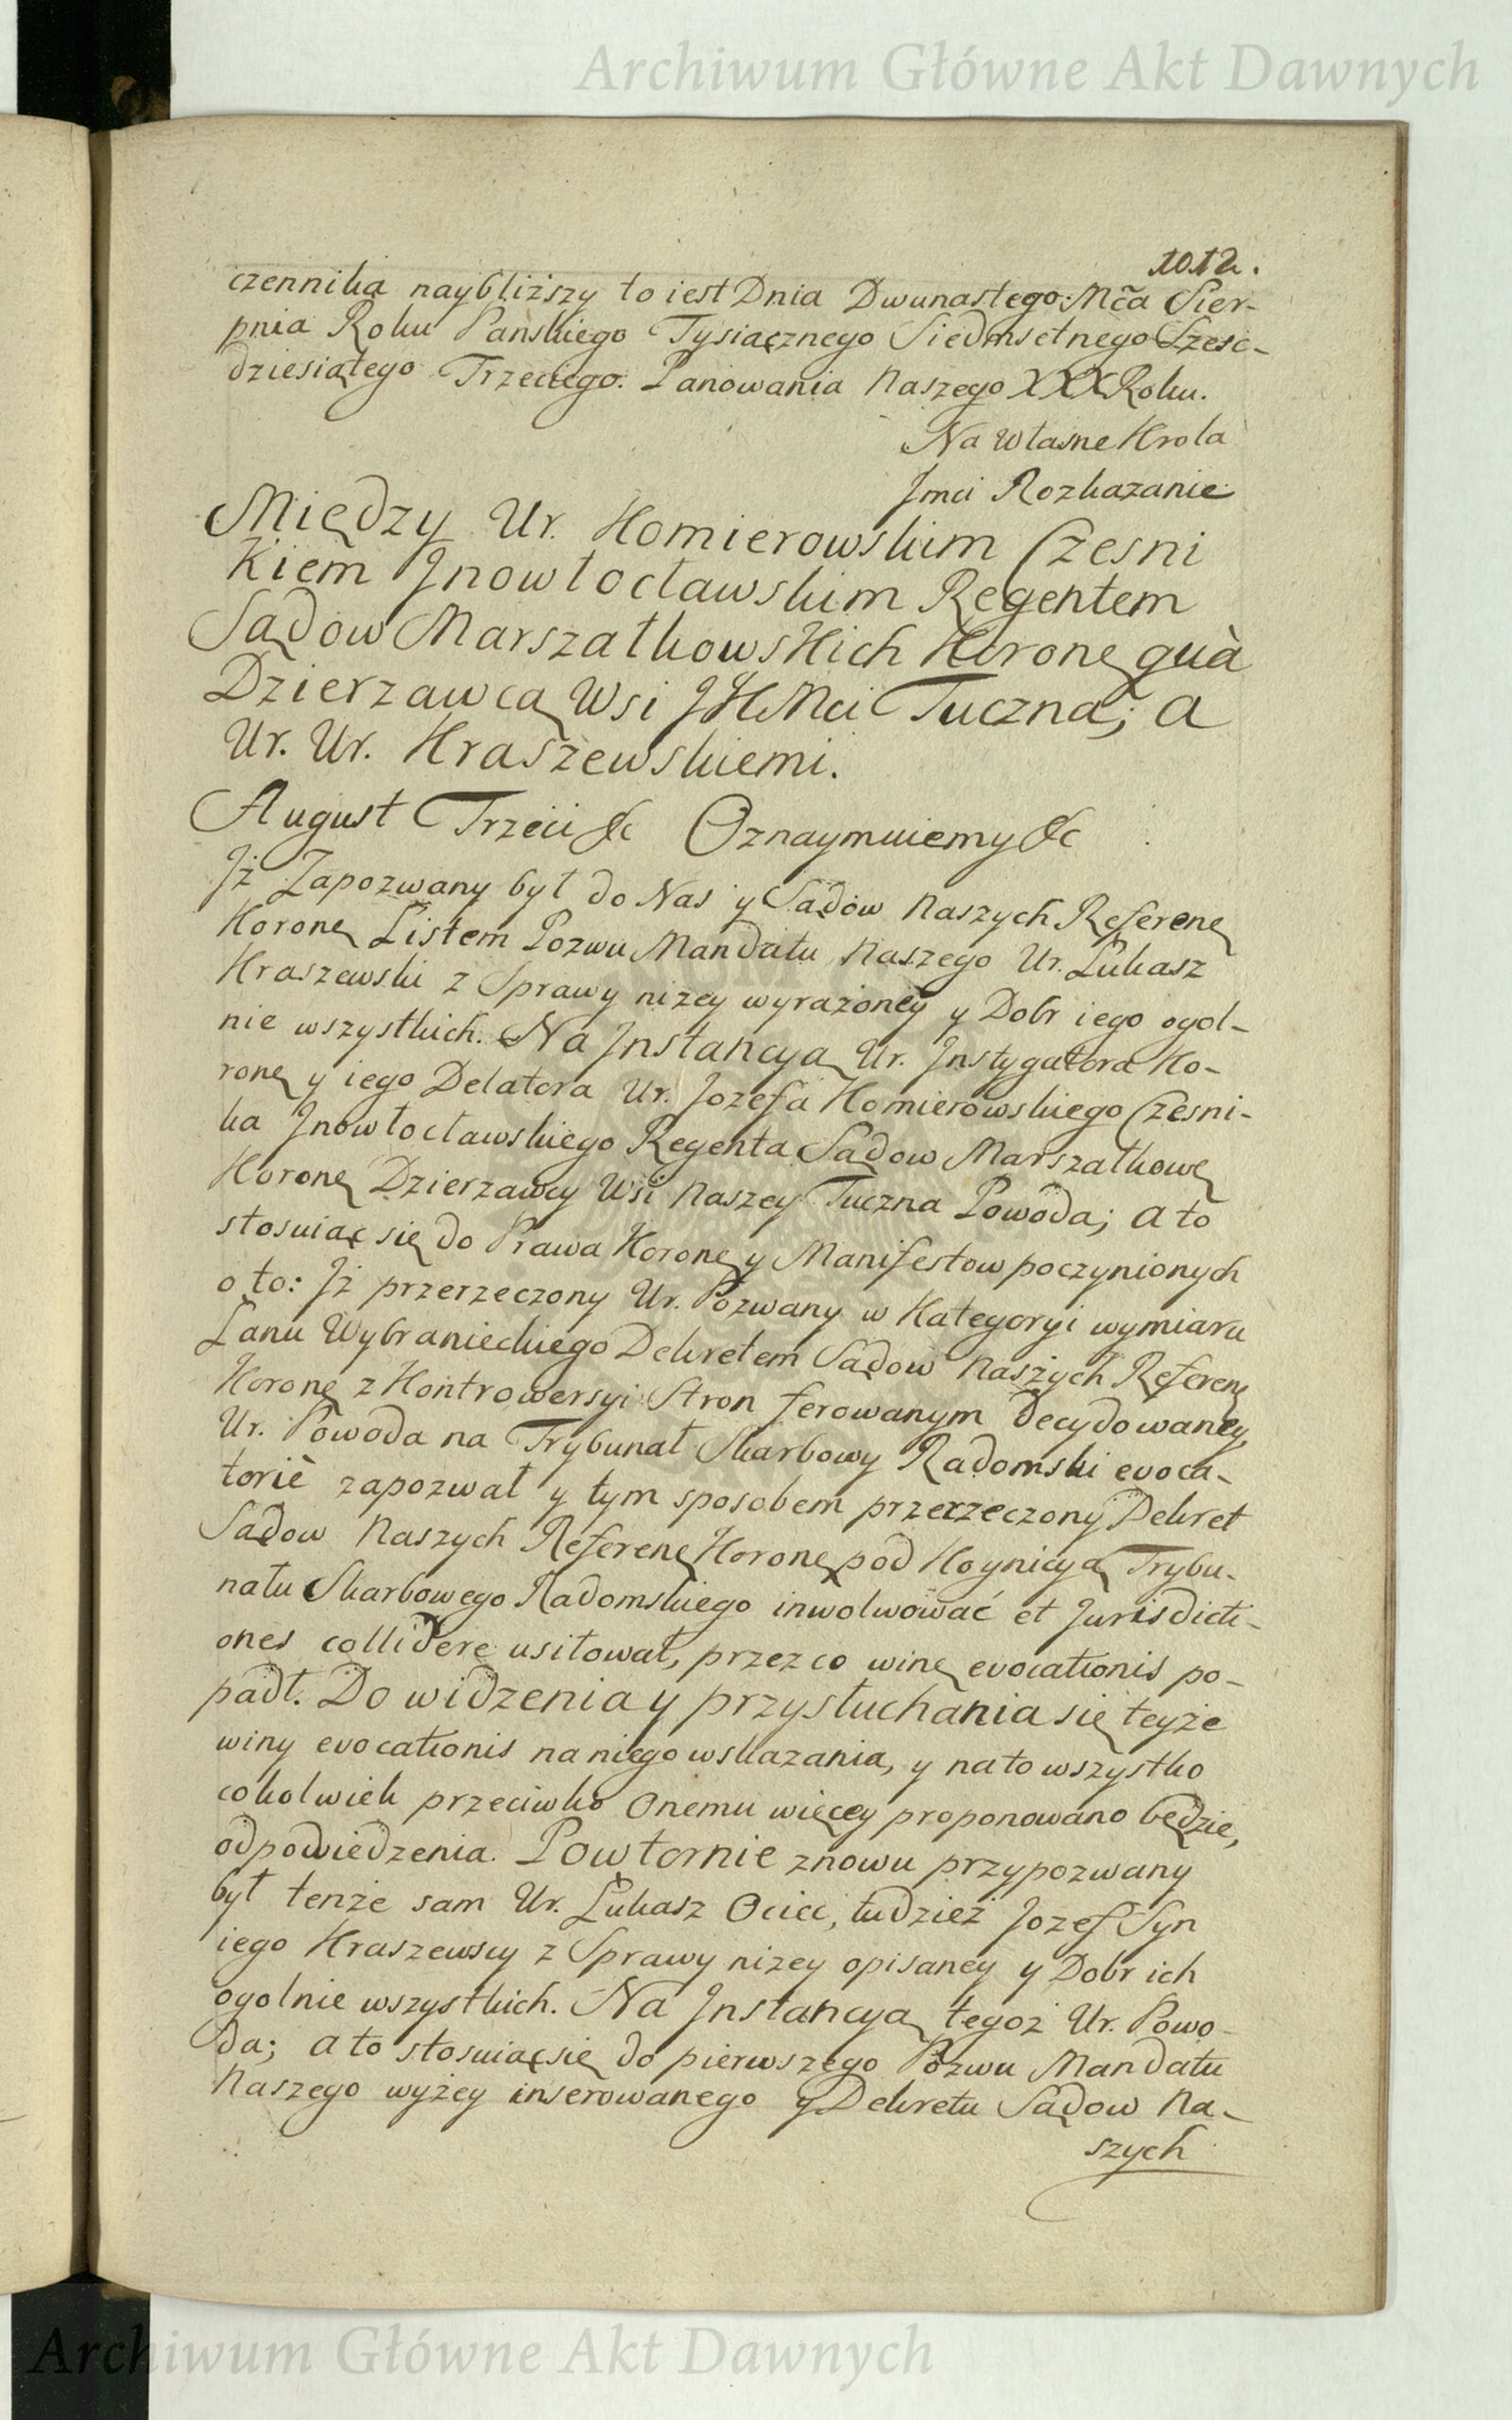 Archiwum Główne Akt Dawnych
1012.
czennika naybliższy to iest Dnia Dwunastego Mca Sier-
pnia Roku Panskiego Tysiącznego Siedmsetnego Szesc-
dziesiątego Trzeciego. Panowania Naszego XXX Roku.
Na Własne Krola
Jmci Rozkazanie
Między Ur. Komierowskim Czesni
kiem Jnowłocławskim Regentem
Sądow Marszałkowskich Korone quà
Dzierzawcą Wsi JKMci Tuczna; a
Ur. Ur. Kraszewskiemi.
August Trzeci &c Oznaymuiemy &c
Jż Zapozwany był do Nas y Sądów Naszych Referen
Koron Listem Pozwu Mandatu Naszego Ur. Łukasz
Kraszewski z Sprawy niżey wyrażoney y Dobr iego ogol-
nie wszystkich. Na Jnstancyą Ur. Jnstygatora Ko-
ron y iego Delatora Ur. Jozefa Komierowskiego Czesni-
ka Jnowłocławskiego Regenta Sądow Marszałkow
Koron Dzierzawcy Wsi Naszey Tuczna Powoda; a to
stosuiąc się do Prawa Koron y Manifestow poczynionych
o to: Jż przerzeczony Ur. Pozwany w Kategoryi wymiaru
Łanu Wybranieckiego Dekretem Sądow Naszych Referen
Koron z Kontrowersyi Stron ferowanym decydowaney,
Ur. Powoda na Trybunał Skarbowy Radomski evoca-
toriè zapozwał y tym sposobem przerzeczony Dekret
Sądow Naszych Referen Koron pod Kognicyą Trybu-
nału Skarbowego Radomskiego inwolwować et Jurisdicti-
ones collidere usitował, przez co winę evocationis po-
padł. Do widzenia y przysłuchania się teyże
winy evocationis na niego wskazania, y na to wszystko
cokolwiek przeciwko Onemu więcey proponowano będzie,
odpowiedzenia. Powtornie znowu przypozwany
był tenże sam Ur. Łukasz Ociec, tudzież Jozef Syn
iego Kraszewscy z Sprawy niżey opisaney y Dobr ich
ogolnie wszystkich. Na Jnstancyą tegoż Ur. Powo-
da; a to stosuiąc się do pierwszego Pozwu Mandatu
Naszego wyżey inserowanego y Dekretu Sądow Na-
szych
Archiwum Główne Akt Dawnych